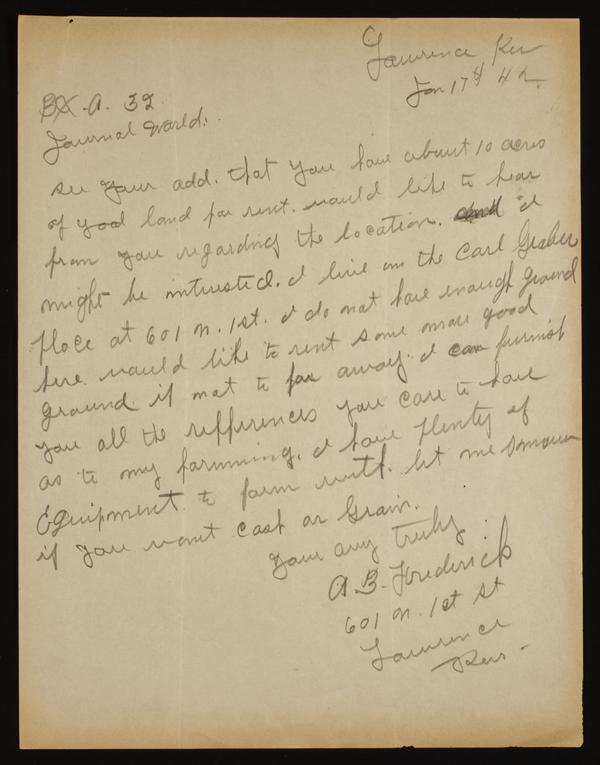 Lawrence Kan
Jan 17th 42.
BX-A. 32
Journal World:
see your add. that you have about 10 acres
of good land for rent. would like to hear
from you regarding the location. I
might be intrusted. I live on the Carl
place at 601 N. 1st. I do not have enough ground
here. would like to rent some more good
ground if not to far away. I can furnish
you all the refferences you care to have
as to my farmming. I have plenty of
Equipment to farm with. let me
if you want cash or Grain.
your truly
A. B. Frederick
601 N. 1st St
Lawrence
Kans-